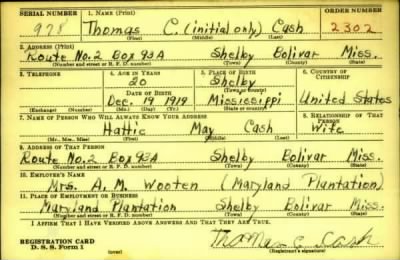 SERIAL NUMBER 1. NAME (Print) ORDER NUMBER
978 Thomas C. (initial only) Cash 2302
(First) (Middle) (Last)
2. ADDRESS (Print)
Route No. 2 Box 93A Shelby Bolivar Miss.
(Number and street or R. F. D. number) (Town) (County) (State)
3. TELEPHONE 4. AGE IN YEARS 5. PLACE OF BIRTH 6. COUNTRY OF CITIZENSHIP
20 Shelby
DATE OF BIRTH (Town or county)
Dec. 19 1919 Mississippi United States
(Exchange) (Number) (Mo.) (Day) (Yr.) (State or country)
7. NAME OF PERSON WHO WILL ALWAYS KNOW YOUR ADDRESS 8. RELATIONSHIP OF THAT PERSON
Hattie May Cash Wife
(Mr., Mrs., Miss) (First) (Middle) (Last)
9. ADDRESS OF THAT PERSON
Route No. 2 Box 93A Shelby Bolivar Miss.
(Number and street or R. F. D. number) (Town) (County) (State)
10. EMPLOYER'S NAME
Mrs. A. M. Wooten (Maryland Plantation)
11. PLACE OF EMPLOYMENT OR BUSINESS
Maryland Plantation Shelby Bolivar Miss.
(Number and street or R. F. D. number) (Town) (County) (State)
I AFFIRM THAT I HAVE VERIFIED ABOVE ANSWERS AND THAT THEY ARE TRUE.
REGISTRATION CARD
D. S. S. Form 1 (over) Thomas C. Cash
(Registrant's signature)